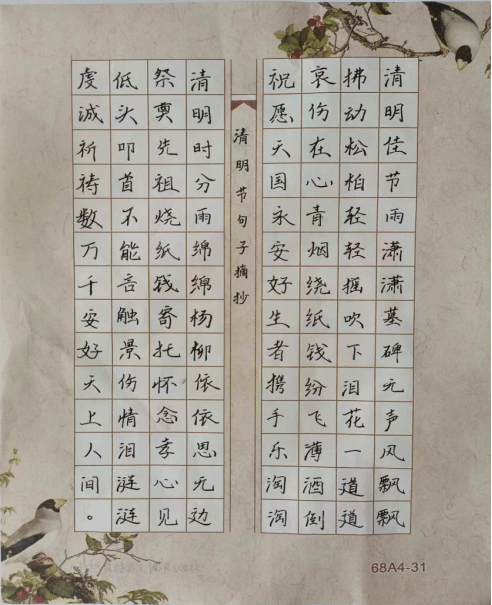 清明佳节雨潇潇墓碑无声风飘飘
拂动松柏轻轻摇吹下泪花一道道
哀伤在心青烟绕纸钱纷飞薄酒倒
祝愿天国永安好生者携手乐淘淘
清明节句子摘抄
清明时分雨绵绵杨柳依依思无边
祭奠先祖烧纸钱寄托怀念孝心见
低头叩首不能言触景伤情泪涟涟
虔诚祈祷数万千安好天上人间。
68A4-31